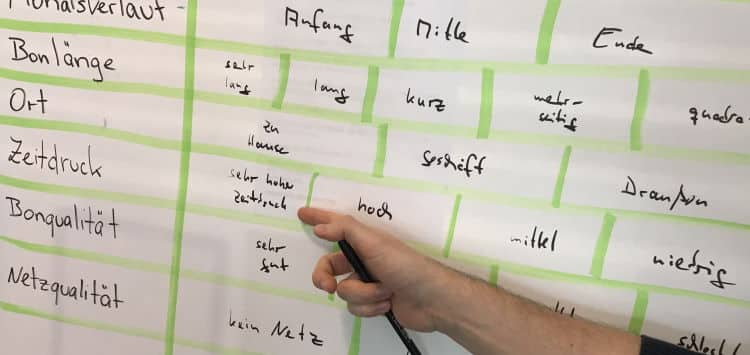 Monatsverlaut - Anfang Mitte Ende
Bonlänge sehr lang lang kurz mehr- seitig quadra-
Ort zu Hause Geschäft Draußen
Zeitdruck sehr hoher Zeitdruck hoch mittel niedrig
Bonqualität sehr gut
Netzqualität kein Netz schlecht